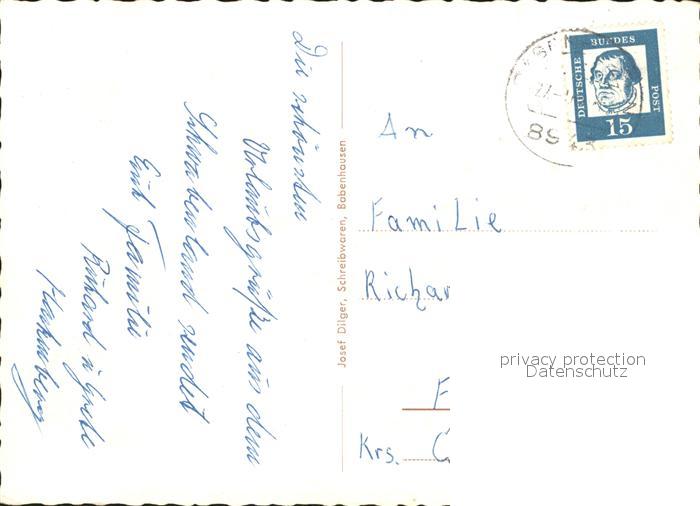 Die schönsten
Urlaubsgrüße aus dem
Schwabenland sendet
Euch Familie
Richard u Grete
Josef Dilger, Schreibwaren, Babenhausen
DEUTSCHE BUNDES POST
15
89
An
Familie
Richar
F
Krs.
privacy protection
Datenschutz